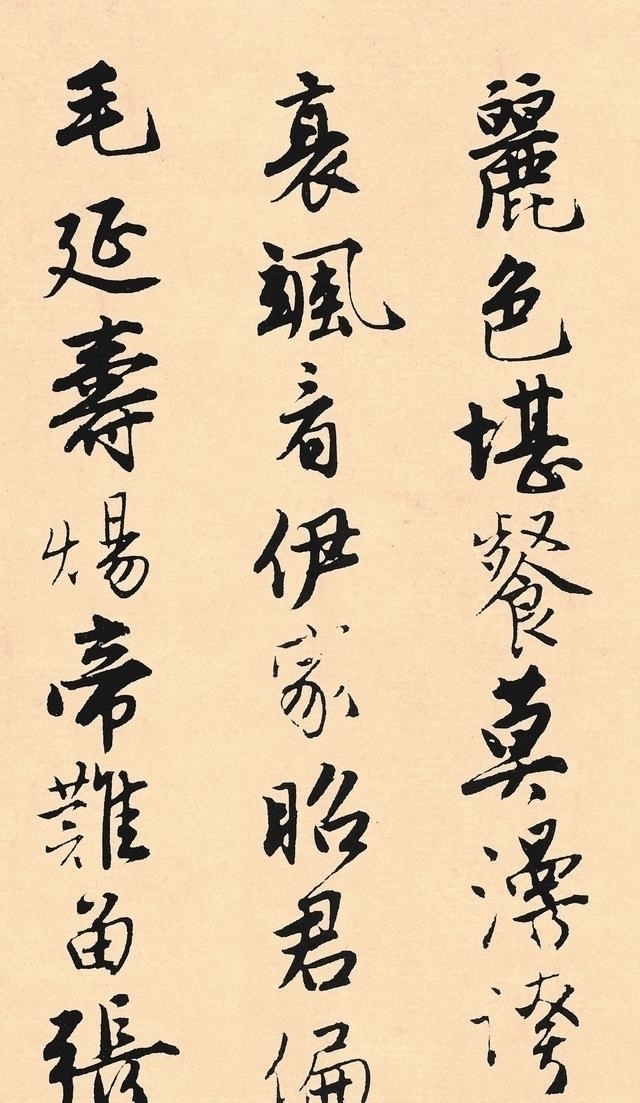 麗色堪餐莫漫誇
衰颯看伊家昭君偏
毛延壽煬帝難留張